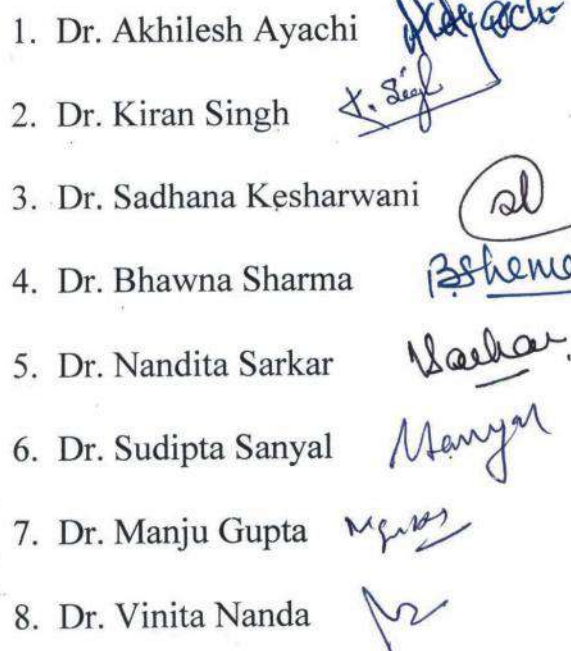 1. Dr. Akhilesh Ayachi
2. Dr. Kiran Singh K. Singh
3. Dr. Sadhana Kesharwani
4. Dr. Bhawna Sharma
5. Dr. Nandita Sarkar
6. Dr. Sudipta Sanyal
7. Dr. Manju Gupta
8. Dr. Vinita Nanda